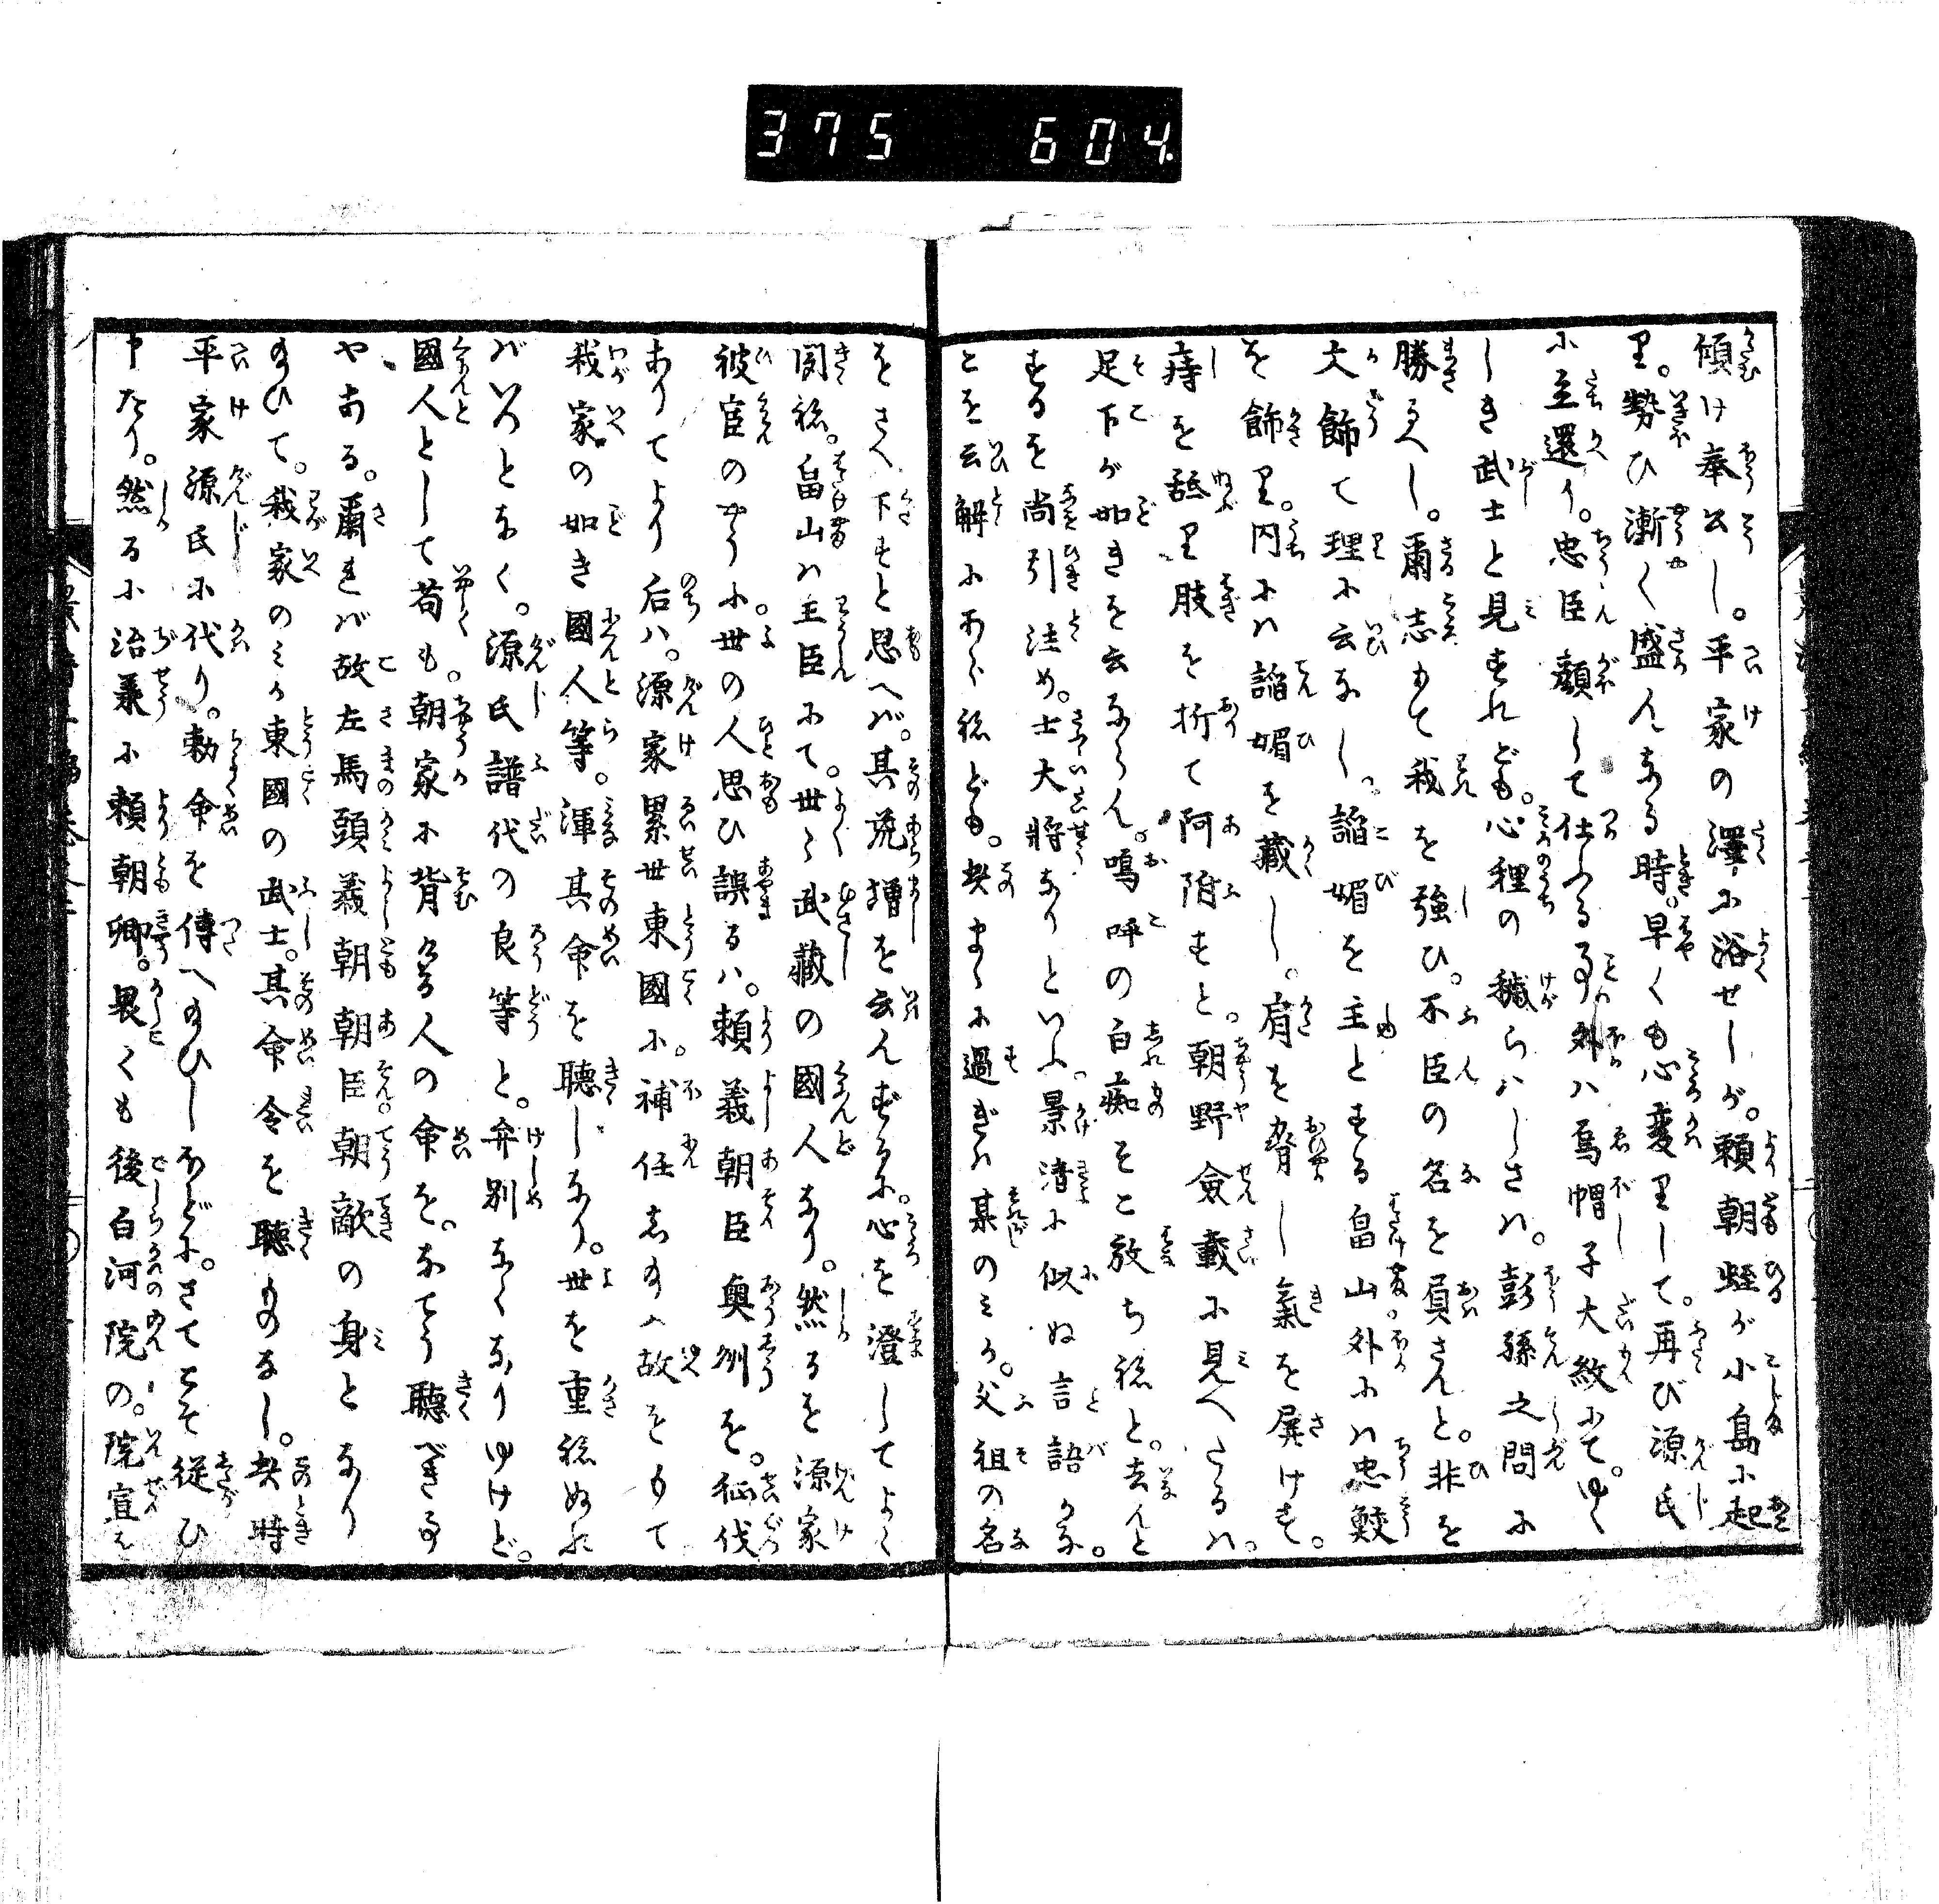 375 604
傾け奉公し。平家の澤に浴せしが。頼朝蛭が小島に起
り。勢ひ漸く盛んなる時。早くも心変りして。再び源氏
に立還り。忠臣顔して仕ふる事外ハ烏帽子大紋にて。ゆく
しき武士と見ゆれども。心裡の穢らハしさハ。彭孫之問に
勝るべし。爾志もて我を強ひ。不臣の名を負さんと。非を
文飾て理に云なし。諂媚を主とする畠山外にハ忠鯁
を飾り。内にハ諂媚を藏し。肩を脅し氣を屏けず。
痔を舐り肢を折て阿附すと。朝野僉載に見へたるハ。
足下が如きを云ならん。嗚呼の白痴そこ放ち祢と。去んと
するを尚引註め。士大將なりといふ。景清に似ぬ言語かな。
とを云解にあら祢ども。夫まゝに過ぎハ某のミか。父祖の名
をさへ下すと思へバ。其説増を云んずるに。心を澄してよく
聞祢。畠山ハ主臣にて。世〻武藏の國人なり。然るを源家
被官のやうに。世の人思ひ誤るハ。頼義朝臣奥州を。征伐
ありてより后ハ。源家累世東國に。補任し玉ふ故をもて
我家の如き國人等。渾其命を聴しなり。世を重祢ぬれ
バいつとなく。源氏譜代の良等と。弁別なくなりゆけど。
國人として苟も。朝家に背く人の命を。なでう聴べき事
やある。爾れバ故左馬頭義朝朝臣。朝敵の身となり
玉ひて。我家のミか東國の武士。其命令を聴ものなし。夫時
平家源氏に代り。勅命を傳へ玉ひしほどに。さてこそ従ひ
申たり。然るに治承に頼朝卿。畏くも後白河院の。院宣を